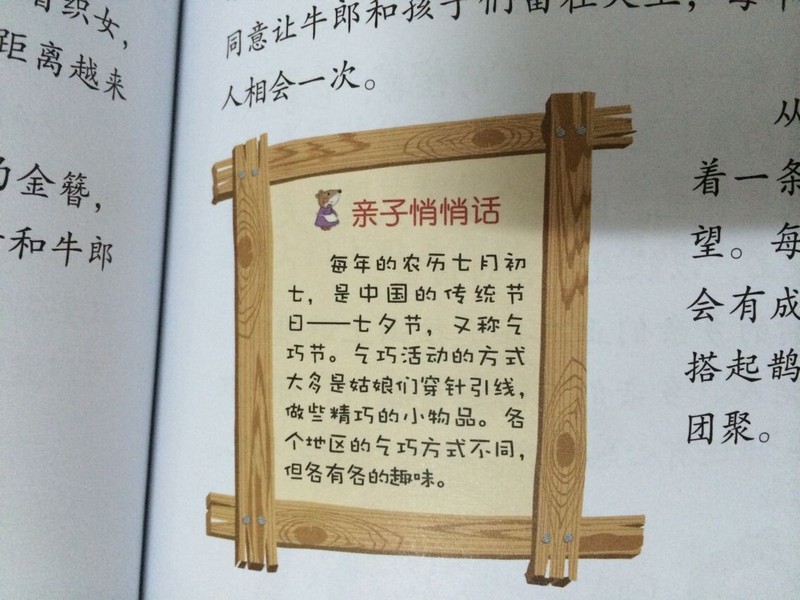 织女，
距离越来
金簪，
和牛郎
同意让牛郎和孩子们留在天上，每年
人相会一次。
亲子悄悄话
每年的农历七月初
七，是中国的传统节
日——七夕节，又称乞
巧节。乞巧活动的方式
大多是姑娘们穿针引线，
做些精巧的小物品。各
个地区的乞巧方式不同，
但各有各的趣味。
从
着一条
望。每
会有成
搭起鹊
团聚。